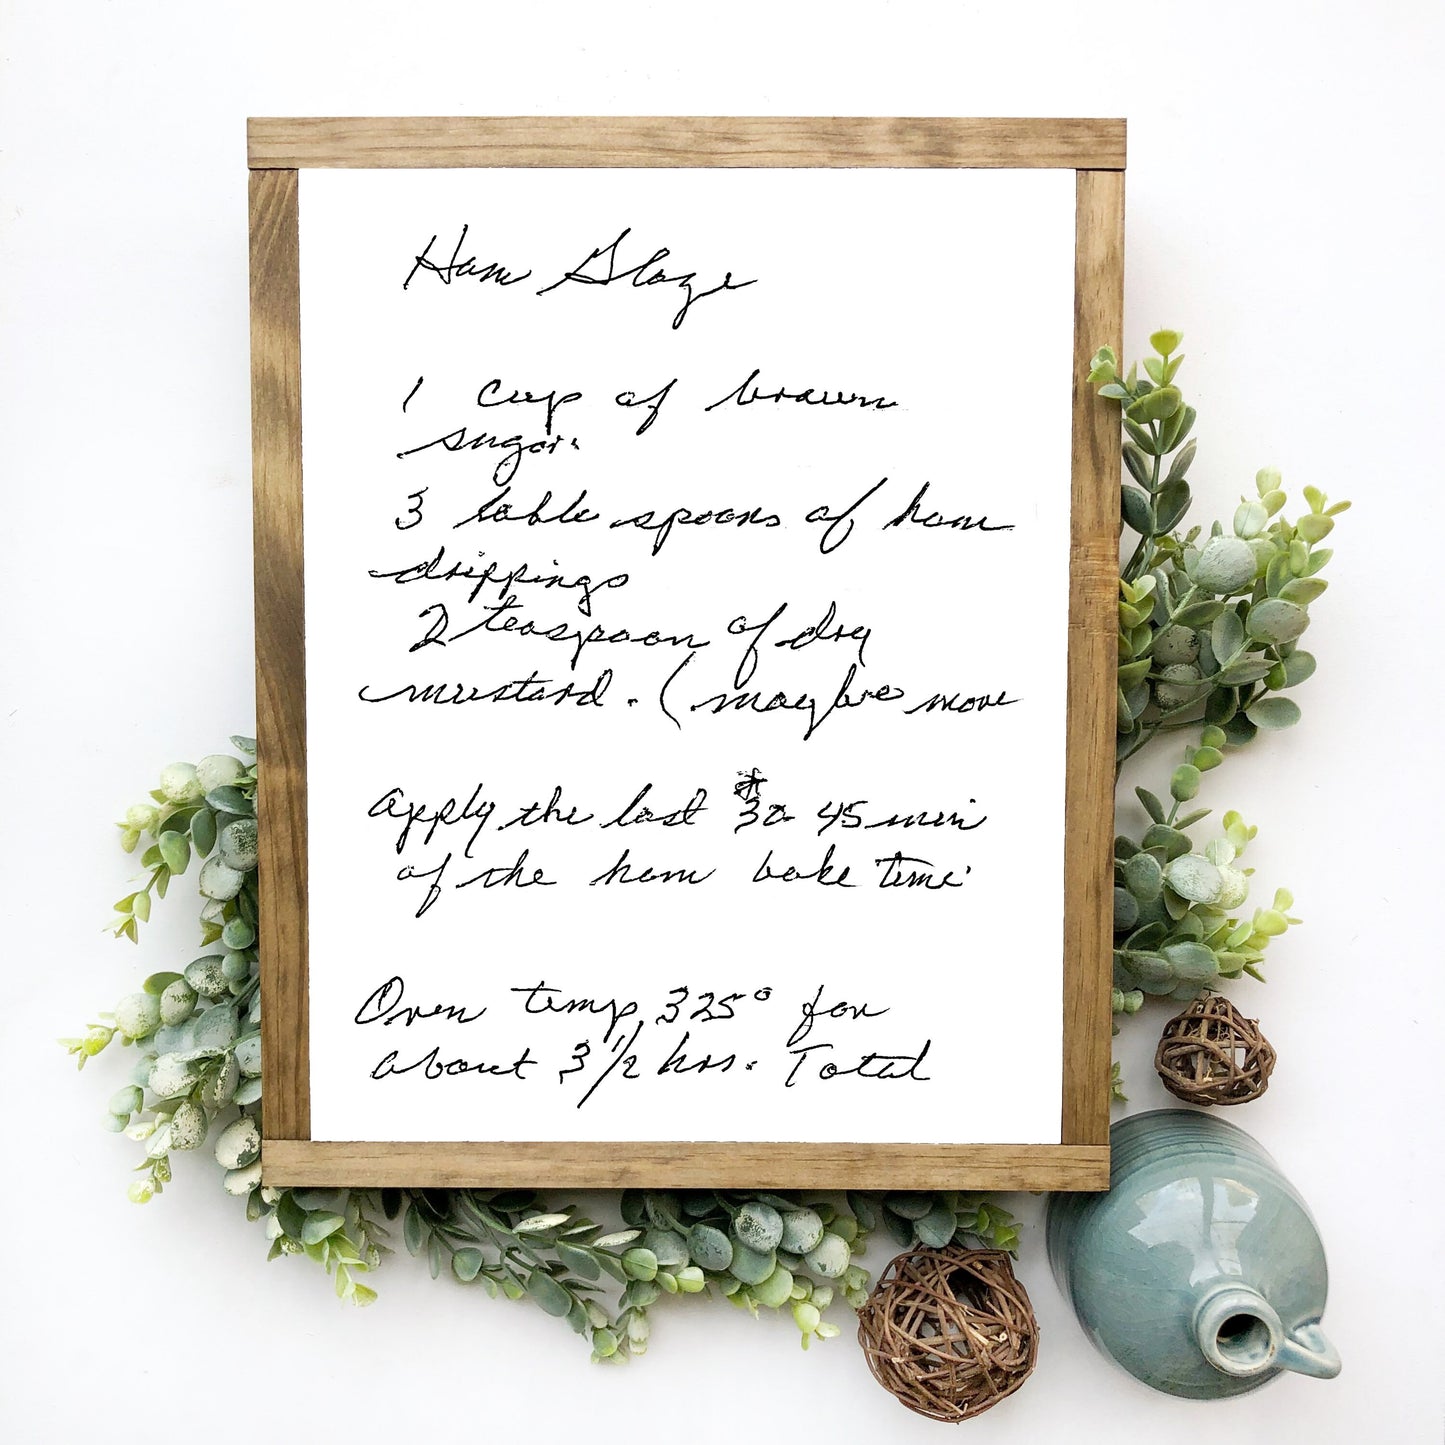 Ham Glaze
1 cup of brown
sugar.
3 table spoons of ham
drippings
2 teaspoon of dry
mustard. (maybee more
Apply the last 30 45 min
of the ham bake time.
Oven temp 325° for
about 3 1/2 hrs. Total